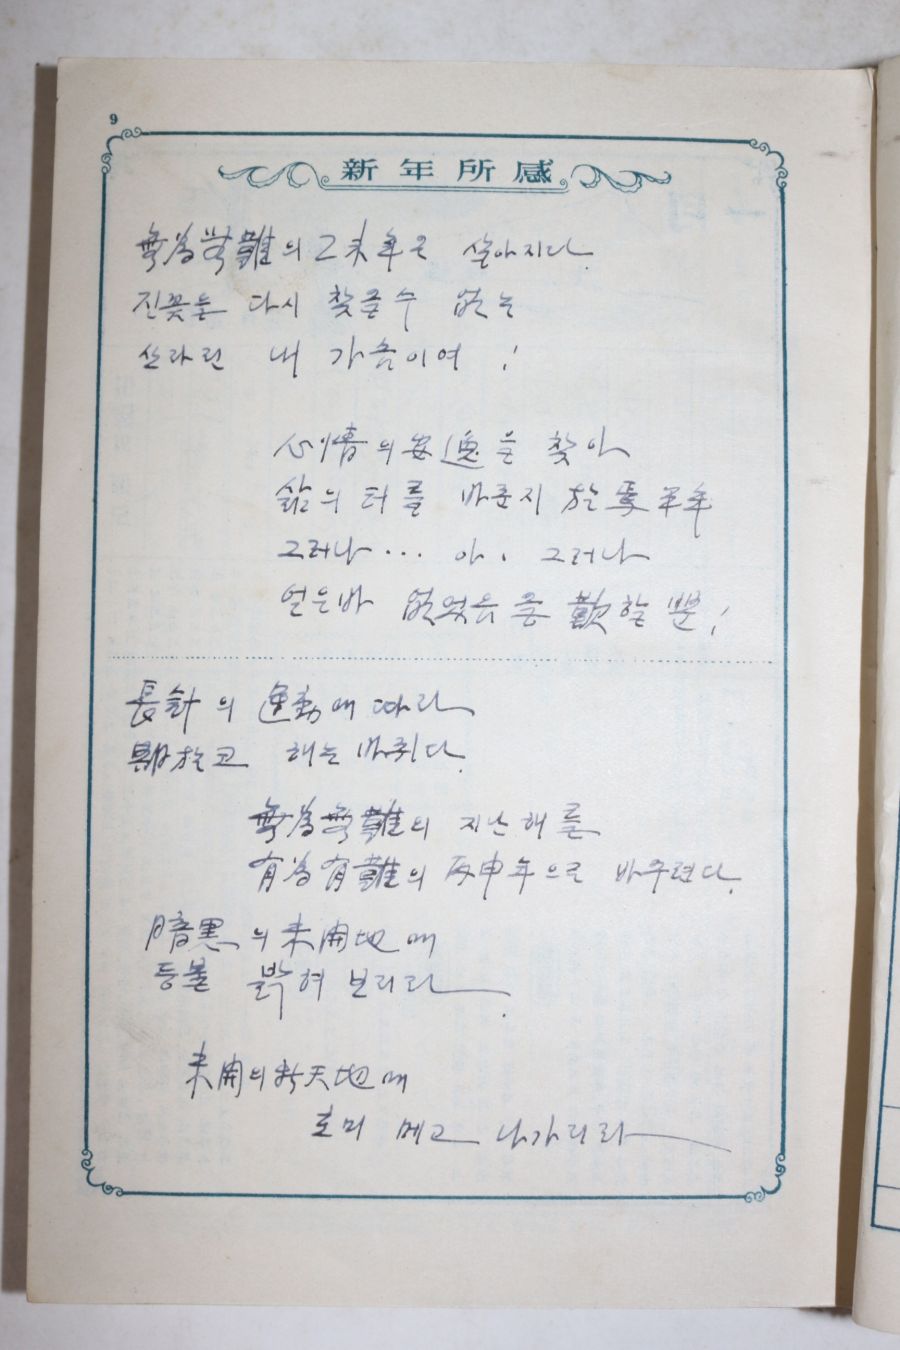 9
新年所感
無為無難의 乙未年은 살아지다.
진꽃은 다시 찾을수 없는
쓰라린 내 가슴이여 !
心情의 安逸을 찾아
삶의 터를 바꾼지 於焉半年
그러나··· 아, 그러나
얻은바 없었음을 歎할 뿐!
長針의 運動에 따라
해는 바뀌다.
無為無難의 지난해를
有為有難의 丙申年으로 바꾸련다.
暗黑의 未開地에
등불 밝혀 보리라.
未開의 新天地에
호미 메고 나가리라